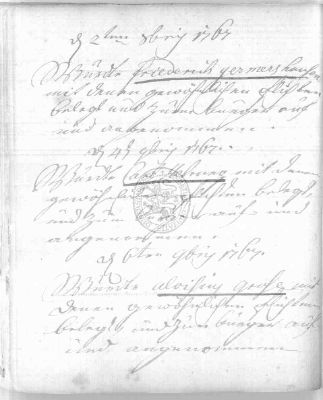 d 2ten 8bris 1767
Wurde Friederich germershausen
mit denen gewöhnlichen Pflichten
belegt und zum burger auf
und angenommen.
d 4ten 9bris 1767.
Wurde mit denen
gewöhnlichen Pflichten belegt,
und zum auf- und
angenommen.
d 6ten 9bris 1767.
Wurde Aloisius mit
denen gewöhnlichen Pflichten
belegt und zum burger auf
und angenommen